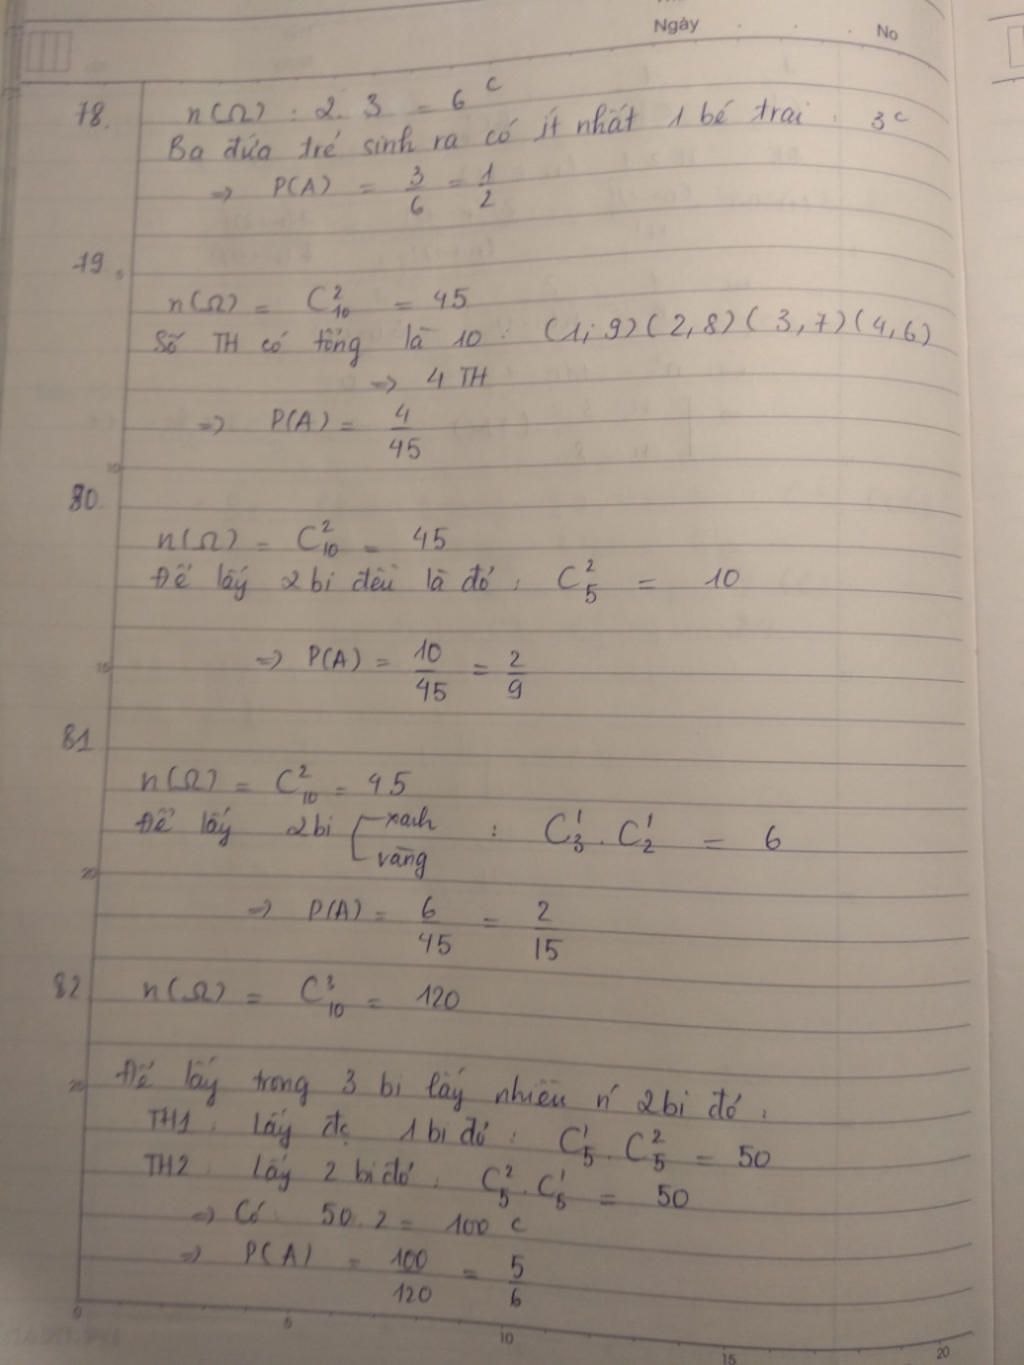 Ngày No
78. n(Ω) : 2. 3 = 6 c
Ba đứa trẻ sinh ra có ít nhất 1 bé trai : 3 c
=> P(A) = 3/6 = 1/2
79.
n(Ω) = C²₁₀ = 45
Số TH có tổng là 10 : (1; 9) (2,8) (3,7) (4,6)
=> 4 TH
=> P(A) = 4/45
80.
n(Ω) = C²₁₀ = 45
Để lấy 2 bi đều là đỏ : C²₅ = 10
=> P(A) = 10/45 = 2/9
81
n(Ω) = C²₁₀ = 45
Để lấy 2 bi xanh vàng : C¹₃ . C¹₂ = 6
=> P(A) = 6/45 = 2/15
82 n(Ω) = C³₁₀ = 120
Để lấy trong 3 bi lấy nhiều n' 2 bi đỏ :
TH1 : lấy đc 1 bi đỏ : C¹₅ . C²₅ = 50
TH2 : lấy 2 bi đỏ : C²₅ . C¹₅ = 50
=> Có : 50 . 2 = 100 c
=> P(A) = 100/120 = 5/6
0 5 10 15 20